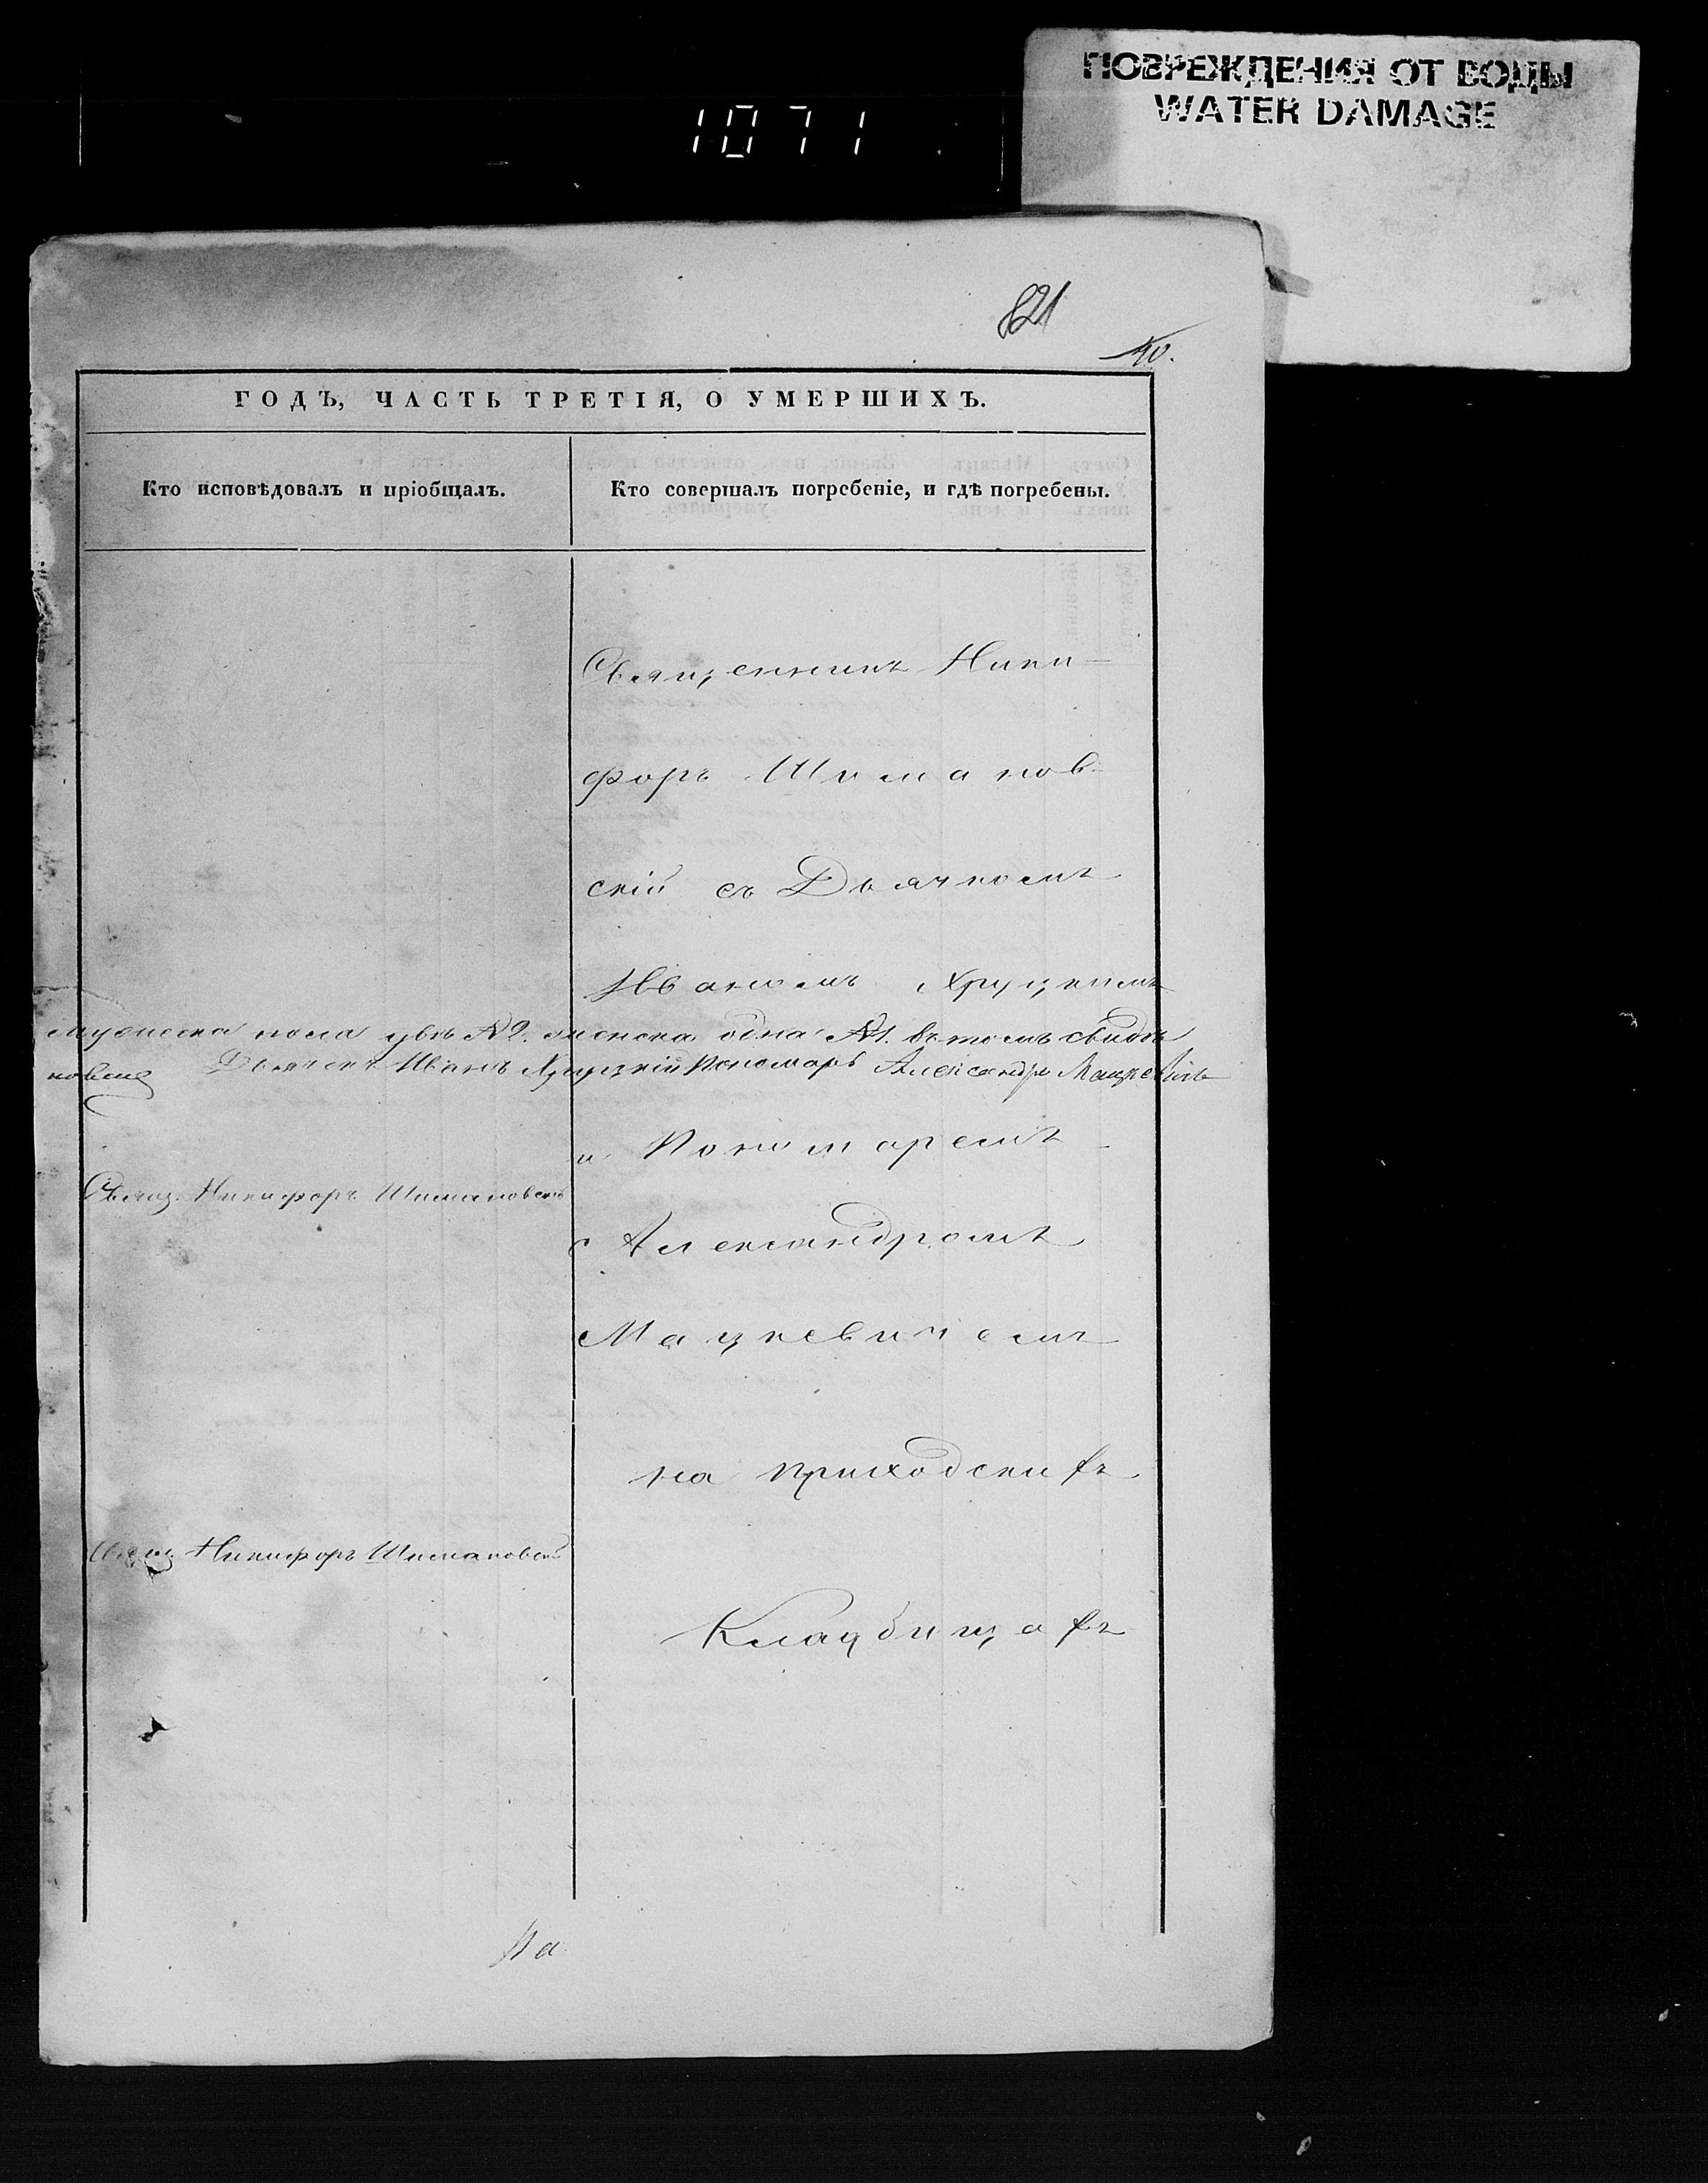 ПОВРЕЖДЕНИЯ ОТ ВОДЫ
WATER DAMAGE
1071
821
ГОДЪ, ЧАСТЬ ТРЕТІЯ, О УМЕРШИХЪ.
Кто исповѣдовалъ и пріобщалъ.
Кто совершалъ погребеніе, и гдѣ погребены.
Священникъ Ники-
форъ Шиманов-
скій съ Дьячкомъ
Иваномъ Хруцкимъ
мужеска пола два №2. женска одна №1. въ томъ
Дьячекъ Иванъ Хруцкій Пономарь Александръ Мацкевичъ
и Пономаремъ
Свящ. Никифоръ Шимановскій
Александромъ
Мацкевичемъ
на приходскихъ
Свящ. Никифоръ Шимановскій
Кладбищахъ